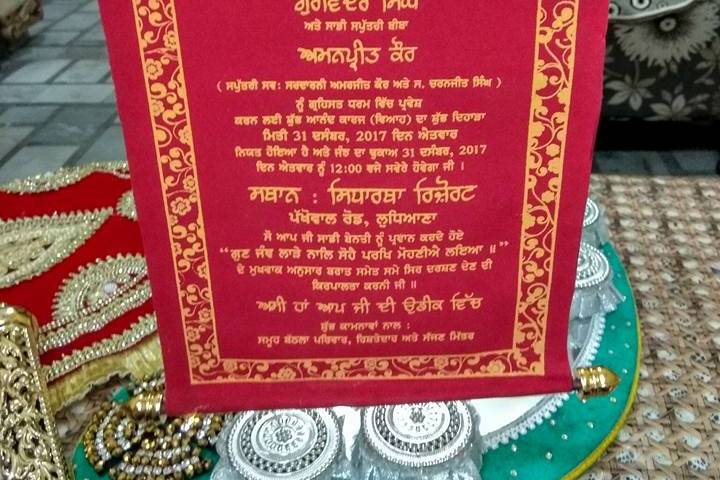 ਗੁਰਵਿੰਦਰ ਸਿੰਘ
ਅਤੇ ਸਾਡੀ ਸਪੁੱਤਰੀ ਬੀਬਾ
ਅਮਨਪ੍ਰੀਤ ਕੌਰ
( ਸਪੁੱਤਰੀ ਸਵ: ਸਰਦਾਰਨੀ ਅਮਰਜੀਤ ਕੌਰ ਅਤੇ ਸ. ਚਰਨਜੀਤ ਸਿੰਘ )
ਨੂੰ ਗ੍ਰਹਿਸਤ ਧਰਮ ਵਿੱਚ ਪ੍ਰਵੇਸ਼
ਕਰਨ ਲਈ ਸ਼ੁੱਭ ਆਨੰਦ ਕਾਰਜ (ਵਿਆਹ) ਦਾ ਸ਼ੁੱਭ ਦਿਹਾੜਾ
ਮਿਤੀ 31 ਦਸੰਬਰ, 2017 ਦਿਨ ਐਤਵਾਰ
ਨਿਯਤ ਹੋਇਆ ਹੈ ਅਤੇ ਜੰਝ ਦਾ ਢੁਕਾਅ 31 ਦਸੰਬਰ, 2017
ਦਿਨ ਐਤਵਾਰ ਨੂੰ 12:00 ਵਜੇ ਸਵੇਰੇ ਹੋਵੇਗਾ ਜੀ ।
ਸਥਾਨ : ਸਿਧਾਰਥਾ ਰਿਜ਼ੋਰਟ
ਪੱਖੋਵਾਲ ਰੋਡ, ਲੁਧਿਆਣਾ
ਸੋ ਆਪ ਜੀ ਸਾਡੀ ਬੇਨਤੀ ਨੂੰ ਪ੍ਰਵਾਨ ਕਰਦੇ ਹੋਏ
“ਗੁਣ ਜੰਞ ਲਾੜੇ ਨਾਲਿ ਸੋਹੈ ਪਰਖਿ ਮੋਹਣੀਐ ਲਇਆ ॥”
ਦੇ ਮੁਖਵਾਕ ਅਨੁਸਾਰ ਬਰਾਤ ਸਮੇਤ ਸਮੇਂ ਸਿਰ ਦਰਸ਼ਣ ਦੇਣ ਦੀ
ਕਿਰਪਾਲਤਾ ਕਰਨੀ ਜੀ ॥
ਅਸੀਂ ਹਾਂ ਆਪ ਜੀ ਦੀ ਉਡੀਕ ਵਿੱਚ
ਸ਼ੁੱਭ ਕਾਮਨਾਵਾਂ ਨਾਲ :
ਸਮੂਹ ਬੱਠਲਾ ਪਰਿਵਾਰ, ਰਿਸ਼ਤੇਦਾਰ ਅਤੇ ਸੱਜਣ ਮਿੱਤਰ